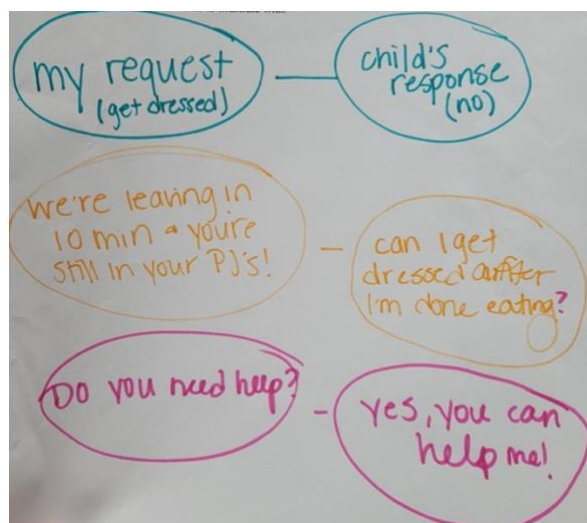 my request
(get dressed)
child's
response
(no)
we're leaving in
10 min & you're
still in your PJ's!
can I get
dressed after
I'm done eating?
Do you need help?
yes, you can
help me!